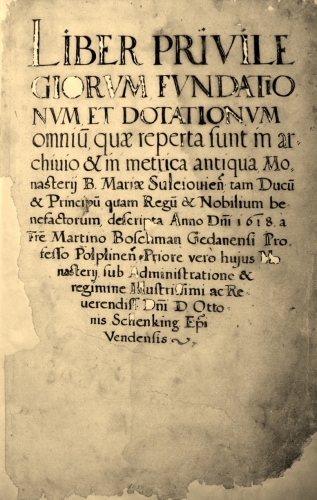 LIBER PRIVILE
GIORVM FVNDATIO
NVM ET DOTATIONVM
omniũ, quæ reperta sunt in ar-
chiuio & in metrica antiqua Mo,
nasterij B. Mariæ Suleiouieñ, tam Ducũ
& Principũ quam Regũ & Nobilium be,
nefactorum, descripta Anno Dñi 1618. a
Fre Martino Boschman Gedanensi Pro,
fesso Polplineñ, Priore vero hujus Mo
nasterij sub Administratione &
regimine Illustrissimi ac Re,
uerendiss Dñi D Otto
nis Schenking Epi
Vendensis